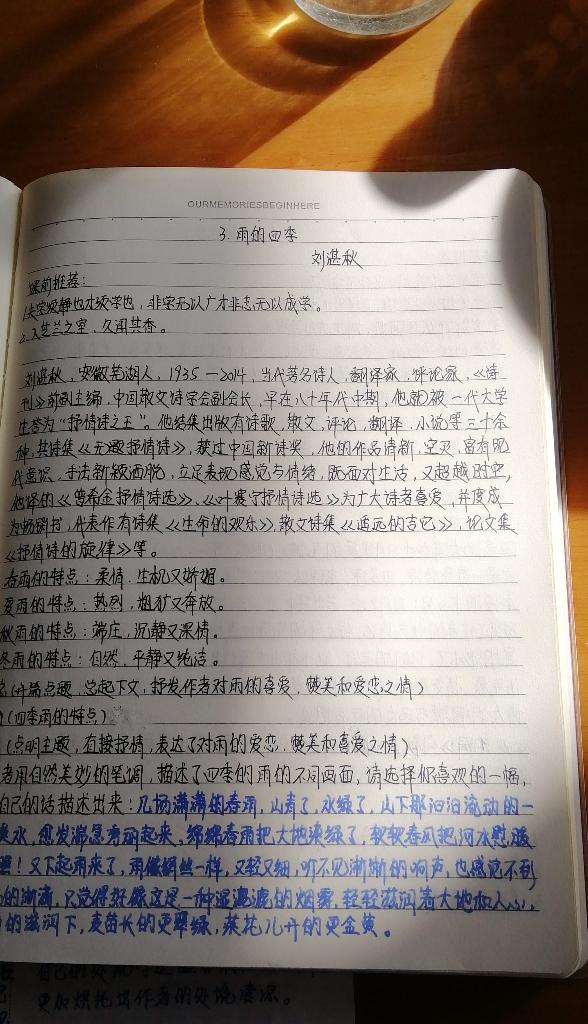 OURMEMORIESBEGINHERE
3. 雨的四季
刘湛秋
课前推荐:
1.夫学须静也才须学也，非学无以广才非志无以成学。
2.入芝兰之室，久闻其香。
刘湛秋，安徽芜湖人，1935—2014，当代著名诗人，翻译家，评论家，《诗
刊》前副主编，中国散文诗学会副会长，早在八十年代中期，他就被一代大学
生誉为“抒情诗之王”。他结集出版有诗歌，散文，评论，翻译，小说等三十余
种，其诗集《无题抒情诗》，获过中国新诗奖，他的作品清新，空灵，富有现
代意识，手法新颖洒脱，立足表现感觉与情绪，既面对生活，又超越时空，
他译的《普希金抒情诗选》、《叶赛宁抒情诗选》为广大读者喜爱，并度成
为畅销书，代表作有诗集《生命的欢乐》，散文诗集《遥远的吉它》，论文集
《抒情诗的旋律》等。
春雨的特点：柔情，生机又娇媚。
夏雨的特点：热烈，粗犷又奔放。
秋雨的特点：端庄，沉静又深情。
冬雨的特点：自然，平静又纯洁。
(开篇点题，总起下文，抒发作者对雨的喜爱，赞美和爱恋之情)
(四季雨的特点)
(点明主题，直接抒情，表达了对雨的爱恋，赞美和喜爱之情)
者用自然美妙的笔调，描述了四季的雨的不同画面，请选择你喜欢的一幅，
自己的话描述出来：几场潇潇的春雨，山青了，水绿了，山下那汩汩流动的一
泉水，愈发湍急奔涌起来，绵绵春雨把大地染绿了，软软春风把河水慰暖
又下起雨来了，雨像绸丝一样，又轻又细，听不见淅淅的响声，也感觉不到
的淅沥，只觉得好像这是一种湿漉漉的烟雾，轻轻滋润着大地和人心，
的滋润下，麦苗长的更翠绿，菜花儿开的更金黄。
更加烘托出作者的处境凄凉。